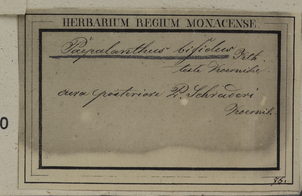 HERBARIUM REGIUM MONACENSE
Paepalanthus bifidus Kth.
teste Koernicke
cura posteriore P. Schraderi
Koernik.
35.
0